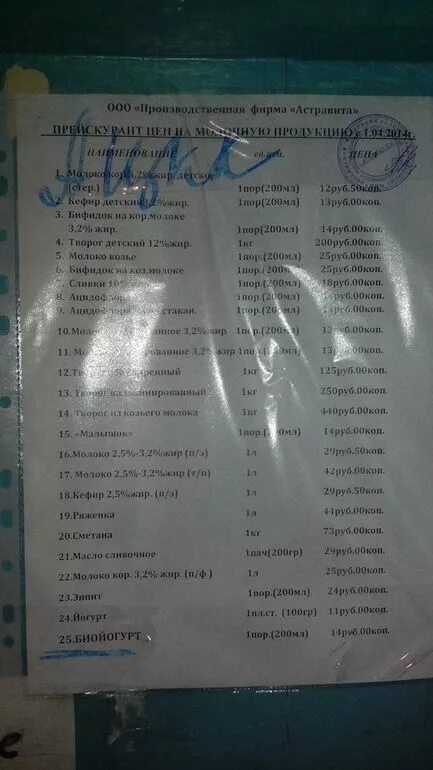 ООО «Производственная фирма «Аствита»
ПРЕЙСКУРАНТ ЦЕН НА МОЛОЧНУЮ ПРОДУКЦИЮ с 1.04.2014г.
НАИМЕНОВАНИ ед.изм. ЦЕНА
1. Молоко кор.3,2%жир. детское
(стер.) 1пор(200мл) 12руб.50коп.
2. Кефир детский 3,2%жир. 1пор(200мл) 13руб.00коп.
3. Бифидок на кор.молоке
3,2% жир. 1пор(200мл) 14руб.00коп.
4. Творог детский 12%жир. 1кг 200руб.00коп.
5. Молоко козье 1пор.(200мл) 25руб.00коп.
6. Бифидок на коз.молоке 1пор.(200мл) 25руб.00коп.
7. Сливки 10% 1пор.(200мл) 18руб.00коп.
8. Ацидофлора 1пор.(200мл) 00коп.
9. Ацидофлора стакан. 1пор.(200мл) 00коп.
10.Молоко 3,2%жир 1пор.(200мл) 00коп.
11. 3,2% жир 1пор.(200мл) 00коп.
12. 1кг 125руб.00коп.
13. Творог кальцинированный 1кг 250руб.00коп.
14. Творог из козьего молока 1кг 440руб.00коп.
15. «Малышок» 1пор.(200мл) 14руб.00коп.
16.Молоко 2,5%-3,2%жир (п/э) 1л 29руб.50коп.
17. Молоко 2,5%-3,2%жир (т/п) 1л 42руб.00коп.
18.Кефир 2,5%жир. (п/э) 1л 29руб.50коп.
19.Ряженка 1л 44руб.00коп.
20.Сметана 1кг 73руб.00коп.
21.Масло сливочное 1пач(200гр) 29руб.00коп.
22.Молоко кор. 3,2% жир. (п/ф ) 1л 25руб.00коп.
23.Энпит 1пор.(200мл) 24руб.00коп.
24.Йогурт 1пл.ст. (100гр) 11руб.00коп.
25.БИОЙОГУРТ 1пор.(200мл) 14руб.00коп.
е